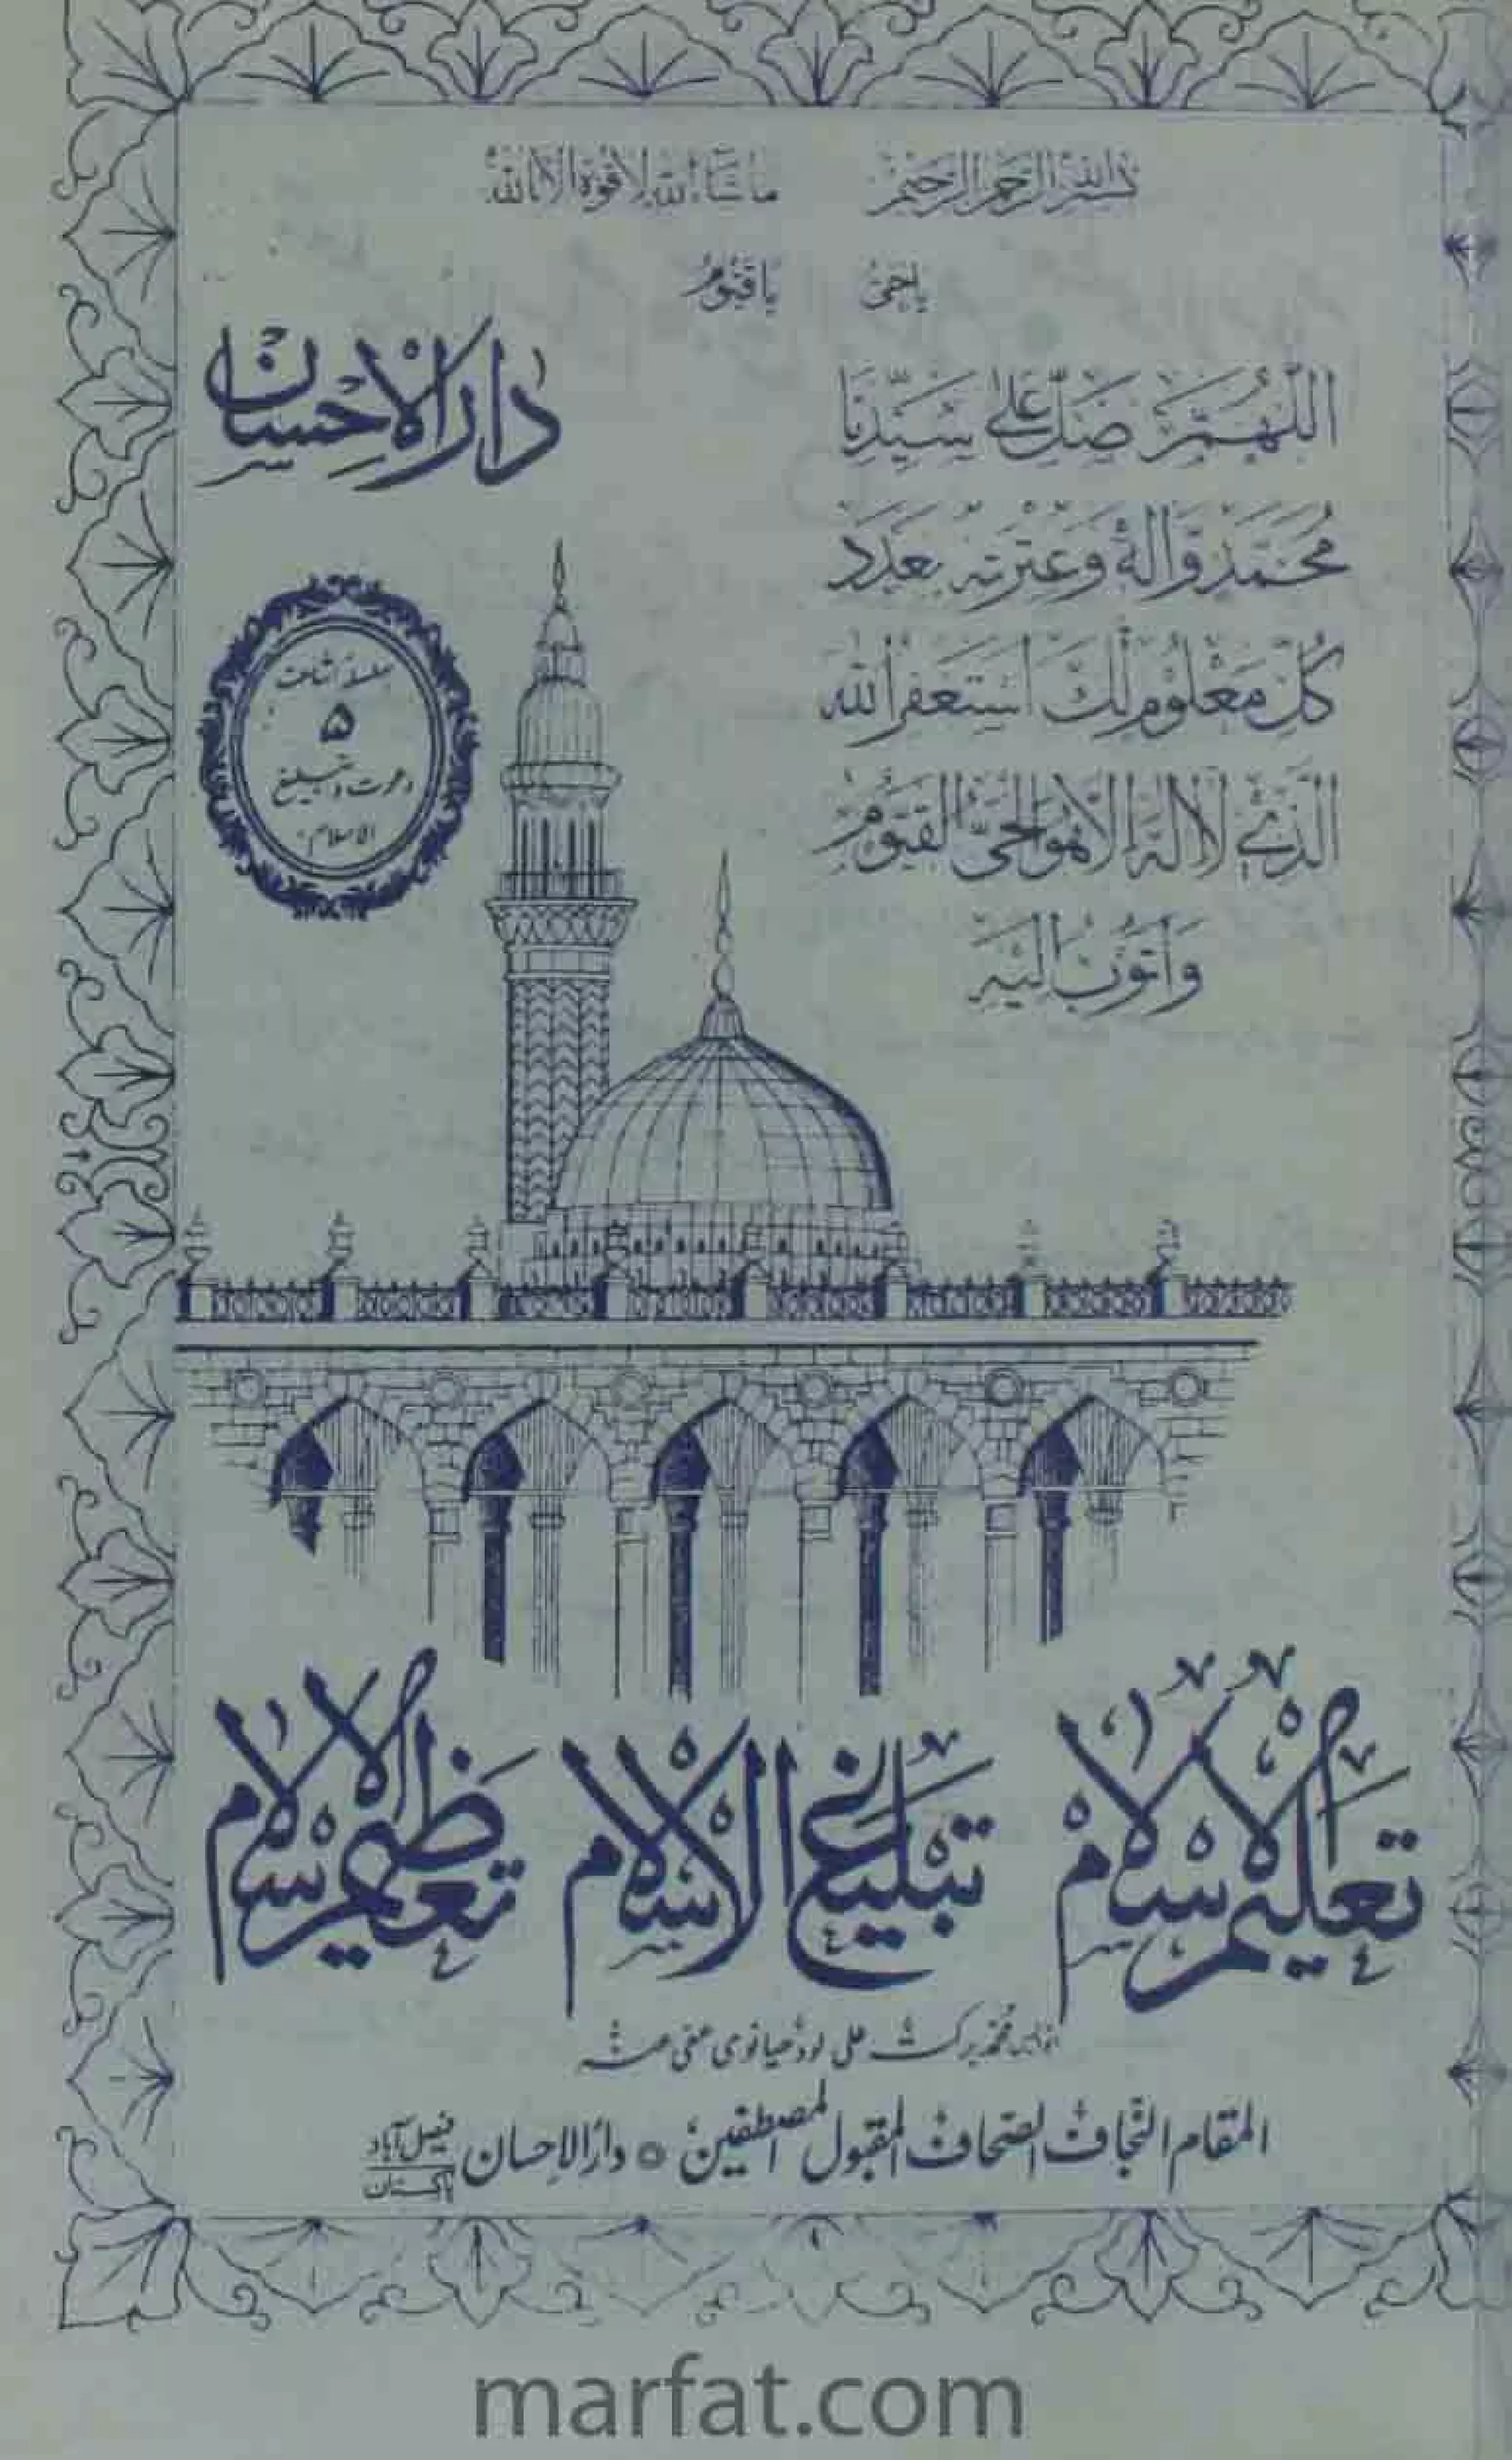 بسم الله الرحمن الرحیم ما شاء الله لا قوة الا بالله
یا حی یا قیوم
دار الاحسان
اللّٰهُمَّ صَلِّ عَلٰی سَیِّدِنَا
مُحَمَّدٍ وَّاٰلِهٖ وَعِتْرَتِهٖ بِعَدَدِ
کُلِّ مَعْلُوْمٍ لَّكَ اَسْتَغْفِرُ الله
الَّذِیْ لَا اِلٰهَ اِلَّا هُوَ الْحَیُّ الْقَیُّوْمُ
وَاَتُوْبُ اِلَیْهِ
سلسلہ اشاعت
۵
دعوت و تبلیغ
الاسلام
تعلیم الاسلام تبلیغ الاسلام تعظیم الاسلام
محمد برکت علی لودھیانوی عفی عنہ
المقام النجاف الصحاف المقبول المصطفین دار الاحسان فیصل آباد
پاکستان
marfat.com